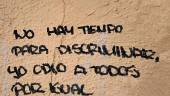 NO HAY TIEMPO
PARA DISCRIMINAR,
YO ODIO A TODOS
POR IGUAL